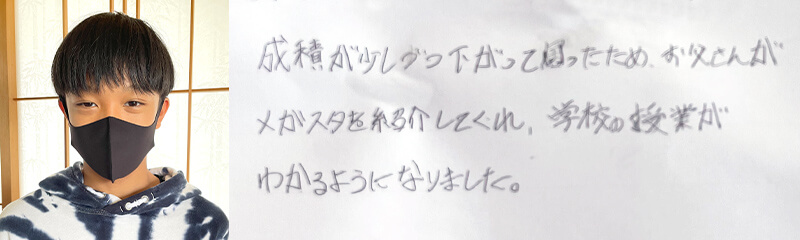 成積が少しづつ下がって困ったため、お父さんが
メガスタを紹介してくれ、学校の授業が
わかるようになりました。